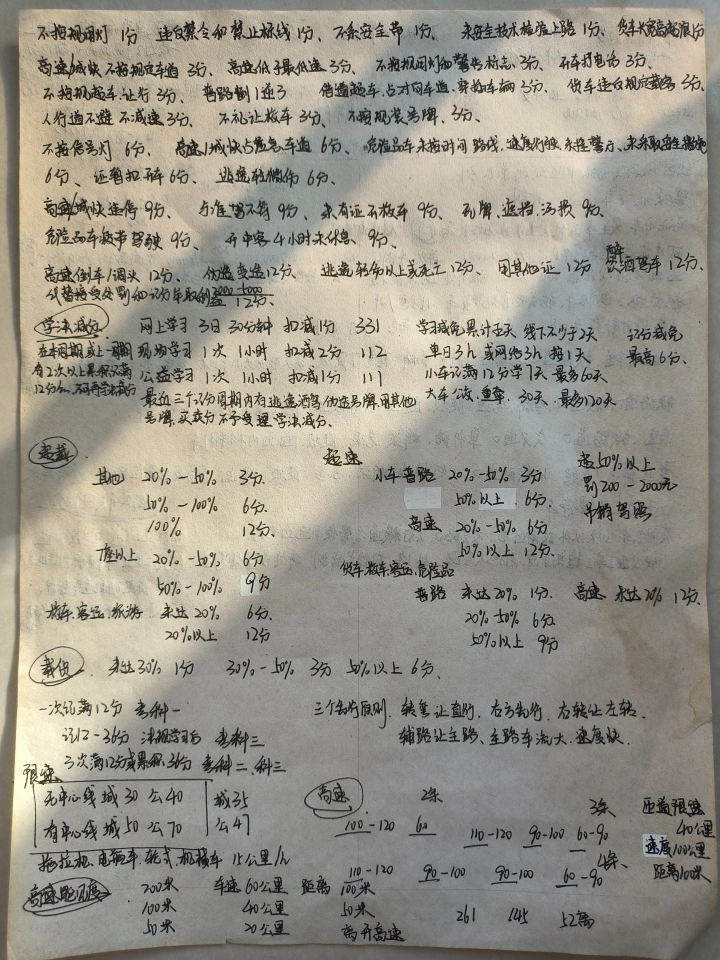 不按规用灯 1分 违反禁令和禁止标线 1分、不系安全带 1分、 未安全技术检验上路 1分、货车长宽高超限1分
高速/城快不按规定车道 3分、高速低于最低速 3分、 不按规用灯和警告标志 3分、 开车打电话 3分、
不按规超车.让行 3分、 普路倒1逆3 借道超车.占对向车道.穿插车辆 3分、 货车违反规定载客 3分、
人行道不避不减速 3分、 不礼让校车 3分、 不按规装号牌、3分、
不按信号灯 6分、 高速/城快占应急车道 6分、 危险品车未按时间 路线、速度行驶 未挂警示、未采取安全措施
6分、 还暂扣开车 6分、 逃逸轻微伤 6分、
高速城快违停 9分、 与准驾不符 9分、 未有证开校车 9分、 无牌、遮挡、污损 9分、
危险品车疲劳驾驶 9分、 开中客4小时未休息、9分、
高速倒车/调头 12分、 伪造变造12分、 逃逸轻伤以上或死亡 12分、 用其他证 12分 醉饮酒驾车 12分、
代替接受处罚和记分牟取利益 12分、
学法减分 网上学习 3日 30分钟 扣减1分 331 学习减免累计五天 线下不少于2天 记分减免
在本周期或上一周期 现场学习 1次 1小时 扣减2分 112 单日3h 或网络3h 抵1天 最高6分、
有2次以上累积记满 公益学习 1次 1小时 扣减1分 111 小车记满12分学7天 最多60天
12分的、不可再学法减分 最近三个记分周期内有逃逸酒驾伪造号牌.用其他 大车公牧.重牵、30天、最多120天
号牌、买卖分 不予受理学法减分、
超载 超速
其他 20%-50% 3分. 小车普路 20%-50% 3分 超50%以上
50%-100% 6分. 50%以上 6分. 罚200-2000元
100% 12分. 高速 20%-50% 6分 吊销驾照
7座以上 20%-50% 6分 50%以上 12分.
50%-100% 9分 货车.校车.客运.危险品
校车.客运.旅游 未达20% 6分. 普路 未达20% 1分. 高速 未达20% 12分.
20%以上 12分 20%-50% 6分
50%以上 9分
载货. 未达30% 1分 30%-50% 3分 50%以上 6分.
一次记满12分 考科一 三个先行原则. 转弯让直行. 右方先行. 右转让左转.
记12-36分 法规学习后 考科三 辅路让主路、主路车流大.速度快.
3次满12分或累积36分 考科二、科三
限速
无中心线 城30 公40 城35 高速 2条 3条 匝道限速
有中心线 城50 公70 公47 100-120 60 110-120 90-100 60-90 40公里
速度100公里
拖拉机.电瓶车.轮式.机械车 15公里/h 4条. 距离100米
110-120 90-100 90-100 60-90
高速能见度 200米 车速 60公里 距离 100米
100米 40公里 50米 261 145 52离
50米 20公里 离开高速